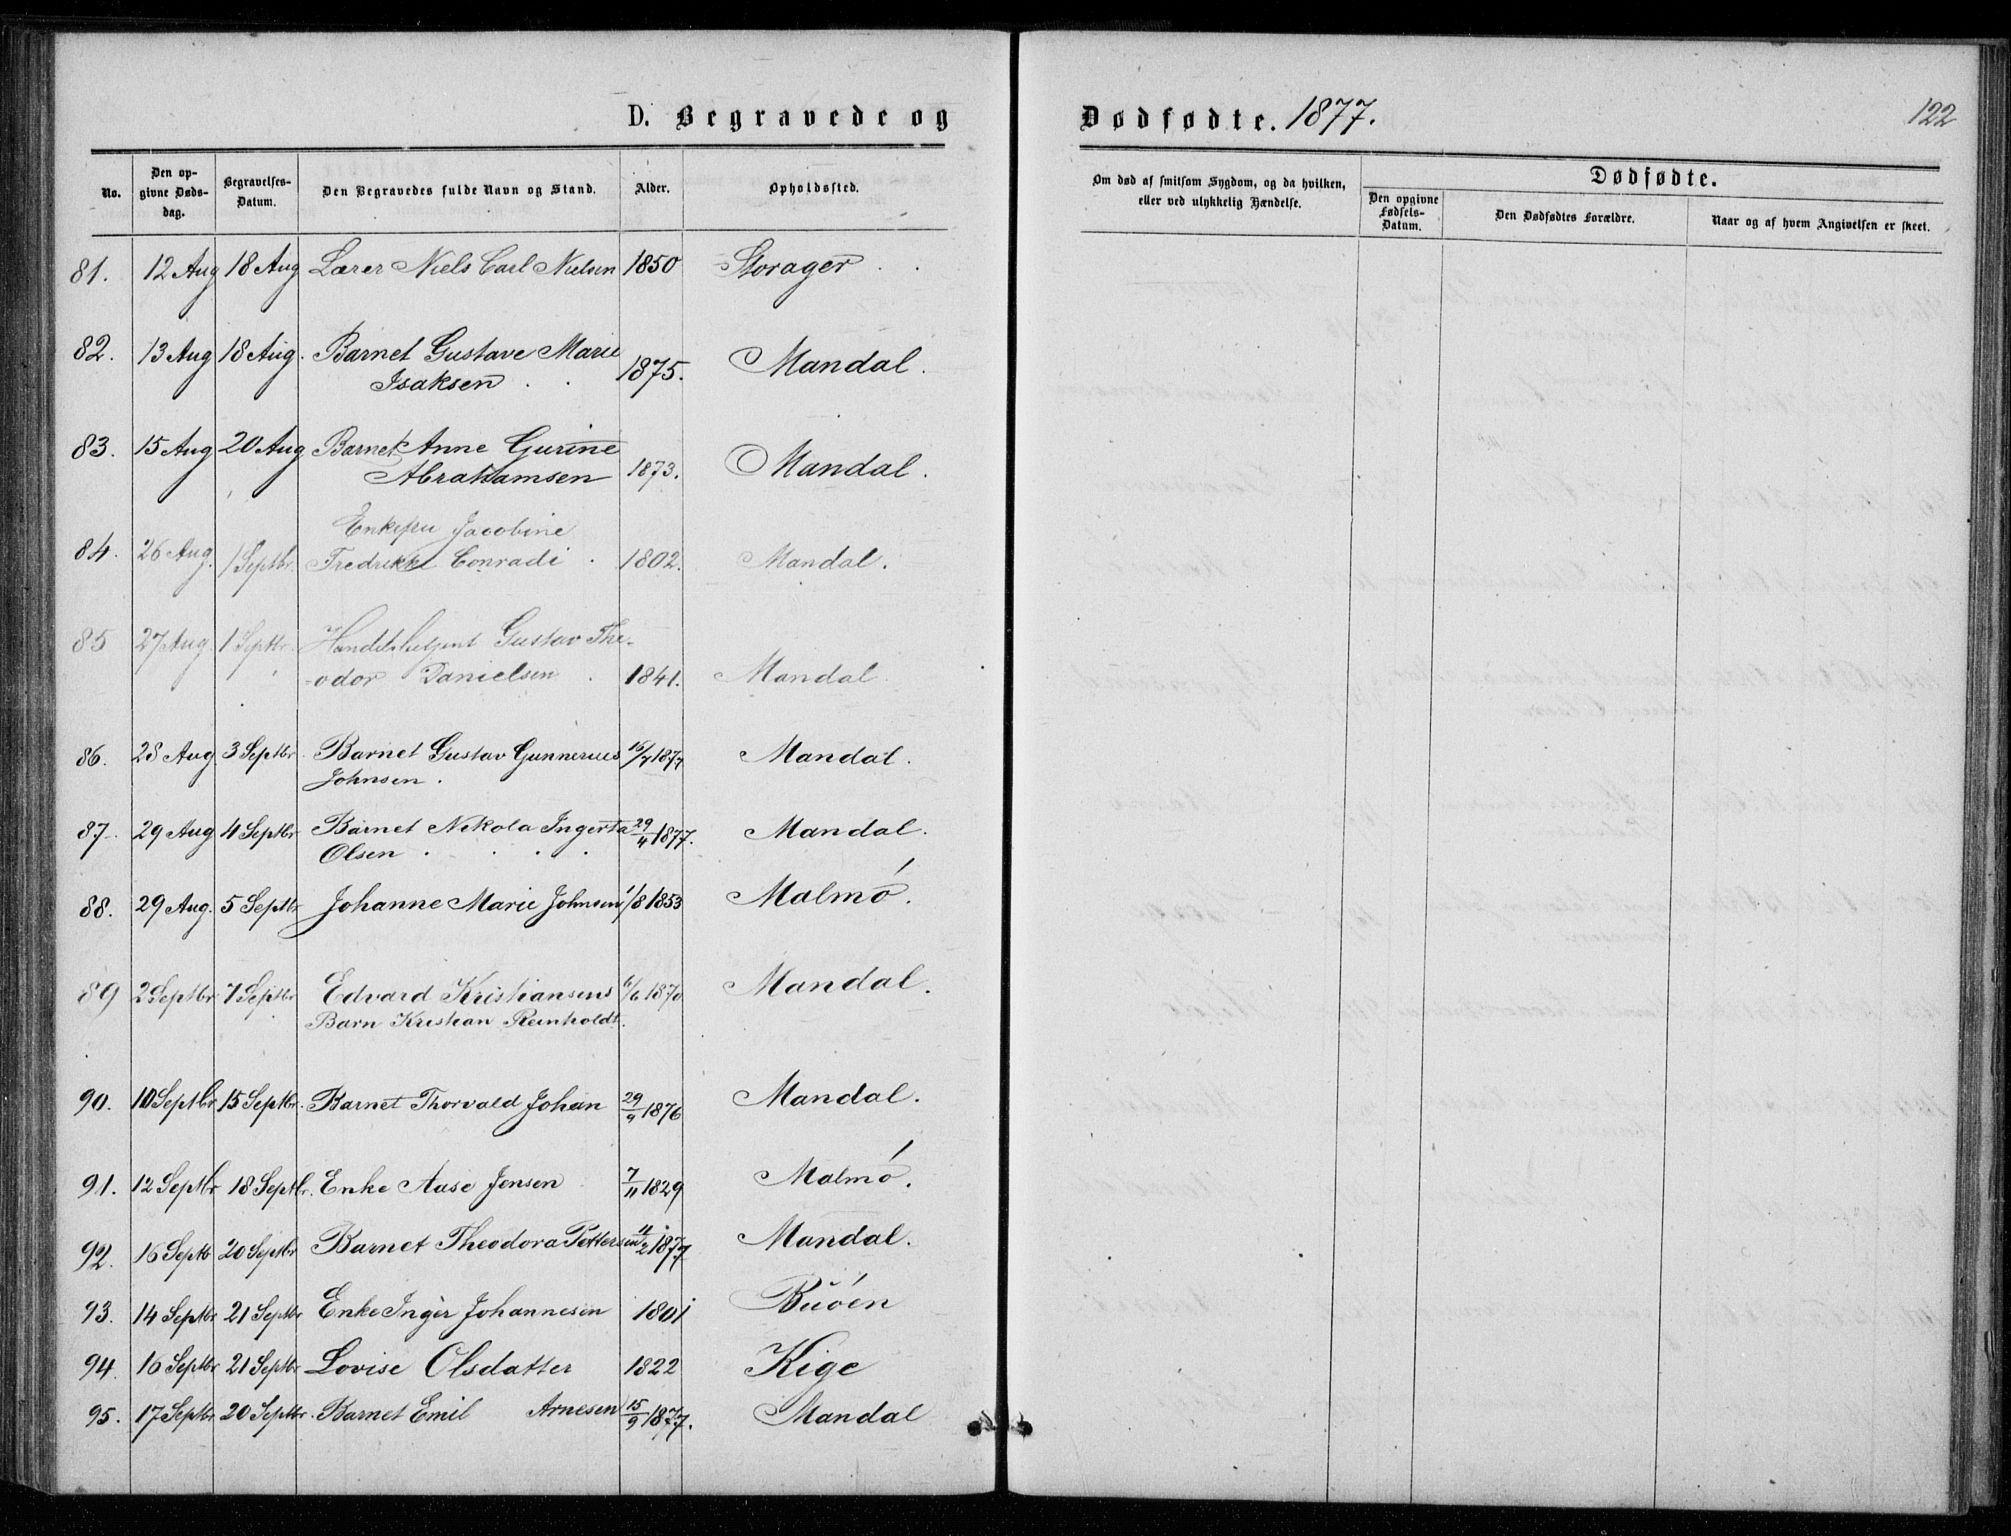 D. Begravede og Dødfødte. 1877. 122
No. Den opgivne Dødsdag. Begravelses-Datum. Den Begravedes fulde Navn og Stand. Alder. Opholdssted. Om død af smitsom Sygdom, og da hvilken, eller ved ulykkelig Hændelse. Dødfødte. Den opgivne Fødsels-Datum. Den Dødfødtes Forældre. Naar og af hvem Angivelsen er skeet.
81. 12 Aug 18 Aug Lærer Niels Carl Nielsen 1850 Storager
82. 13 Aug 18 Aug. Barnet Gustave Marie
Isaksen 1875. Mandal.
83. 15 Aug 20 Aug Barnet Anne Gurine
Abrahamsen 1873. Mandal.
84. 26 Aug. 1 Septbr. Enkefru Jacobine
Fredrikke Conradi 1802. Mandal.
85 27 Aug. 1 Septbr. Handelsbetjent Gustav The-
odor Danielsen 1841. Mandal.
86. 28 Aug 3 Septbr. Barnet Gustav Gunnerius 16/7 1877 Mandal.
Johnsen.
87. 29 Aug 4 Septbr Barnet Nekola Ingerta 29/4 1877. Mandal.
Olsen
88. 29 Aug. 5 Septbr. Johanne Marie Johnsen 1/8 1853 Malmö.
89 2 Septbr 7 Septbr Edvard Kristiansens 6/6 1870 Mandal.
Barn Kristian Reinholdt.
90. 10 Septbr 15 Septbr. Barnet Thorvald Johan 29/9 1876 Mandal.
91. 12 Septbr 18 Septbr. Enke Aase Jensen 7/11 1829 Malmö.
92. 16 Septb 20 Septbr Barnet Theodora Pettersen 4/2 1877 Mandal.
93. 14 Septbr 21 Septbr Enke Inger Johannesen 1801 Buöen
94. 16 Septbr 21 Septbr Lovise Olsdatter 1822 Kige
95. 17 Septbr 20 Septbr. Barnet Emil Arnesen 15/9 1877. Mandal